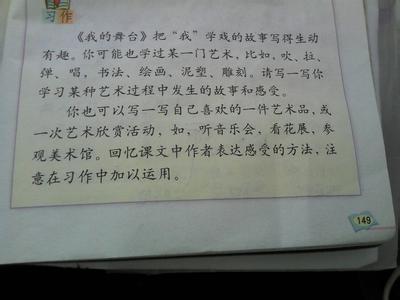 习作
《我的舞台》把“我”学戏的故事写得生动
有趣。你可能也学过某一门艺术，比如，吹、拉、
弹、唱，书法、绘画、泥塑、雕刻。请写一写你
学习某种艺术过程中发生的故事和感受。
你也可以写一写自己喜欢的一件艺术品，或
一次艺术欣赏活动，如，听音乐会，看花展，参
观美术馆。回忆课文中作者表达感受的方法，注
意在习作中加以运用。
149